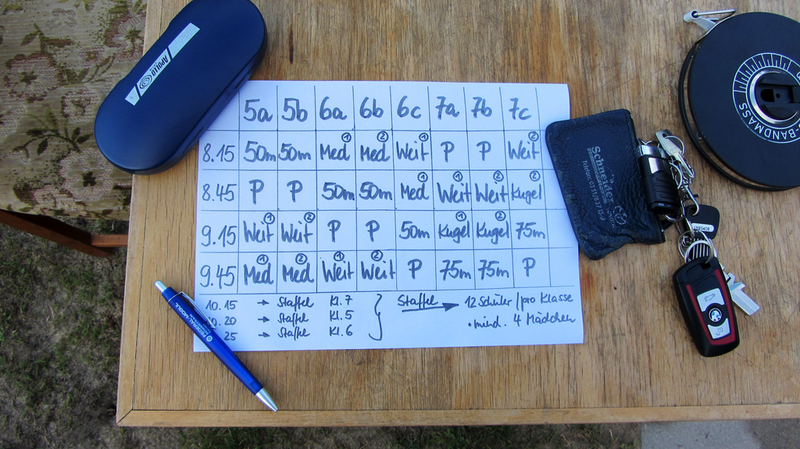 APOLLO
5a 5b 6a 6b 6c 7a 7b 7c
8.15 50m 50m Med① Med② Weit① P P Weit②
8.45 P P 50m 50m Med① Weit① Weit② Kugel②
9.15 Weit① Weit② P P 50m Kugel① Kugel② 75m
9.45 Med① Med② Weit① Weit② P 75m 75m P
10.15 → Staffel Kl. 7
10.20 → Staffel Kl. 5
25 → Staffel Kl. 6
Staffel → 12 Schüler / pro Klasse
• mind. 4 Mädchen
Schneider
BANDMASS